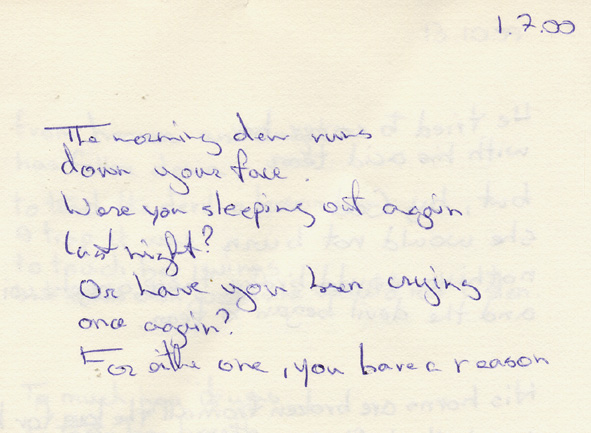 1.7.00
The morning dew runs
down your face.
Were you sleeping out again
last night?
Or have you been crying
once again?
For eithe one, you have a reason